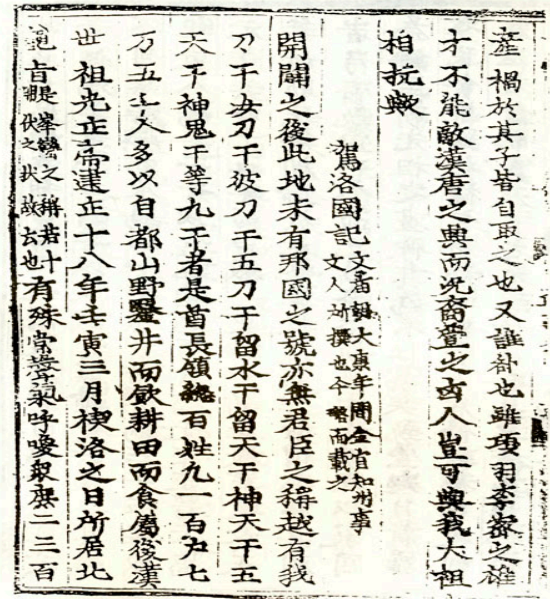 產禍於其子皆自取之也又誰咎也雖項羽李密之雄
才不能敵漢唐之興而況裔萱之凶人豈可與我大祖
相抗歟
駕洛國記
文廟朝大康年間金官知州事
文人所撰也今略而載之
開闢之後此地未有邦國之號亦無君臣之稱越有我
刀干汝刀干彼刀干五刀干留水干留天干神天干五
天干神鬼干等九干者是酋長領總百姓九一百戶七
万五千人多以自都山野鑿井而飲耕田而食屬後漢
世祖光正帝建正十八年壬寅三月禊洛之日所居北
龜旨
是峯巒之稱若十
朋伏之狀故云也
有殊常聲氣呼喚衆庶二三百